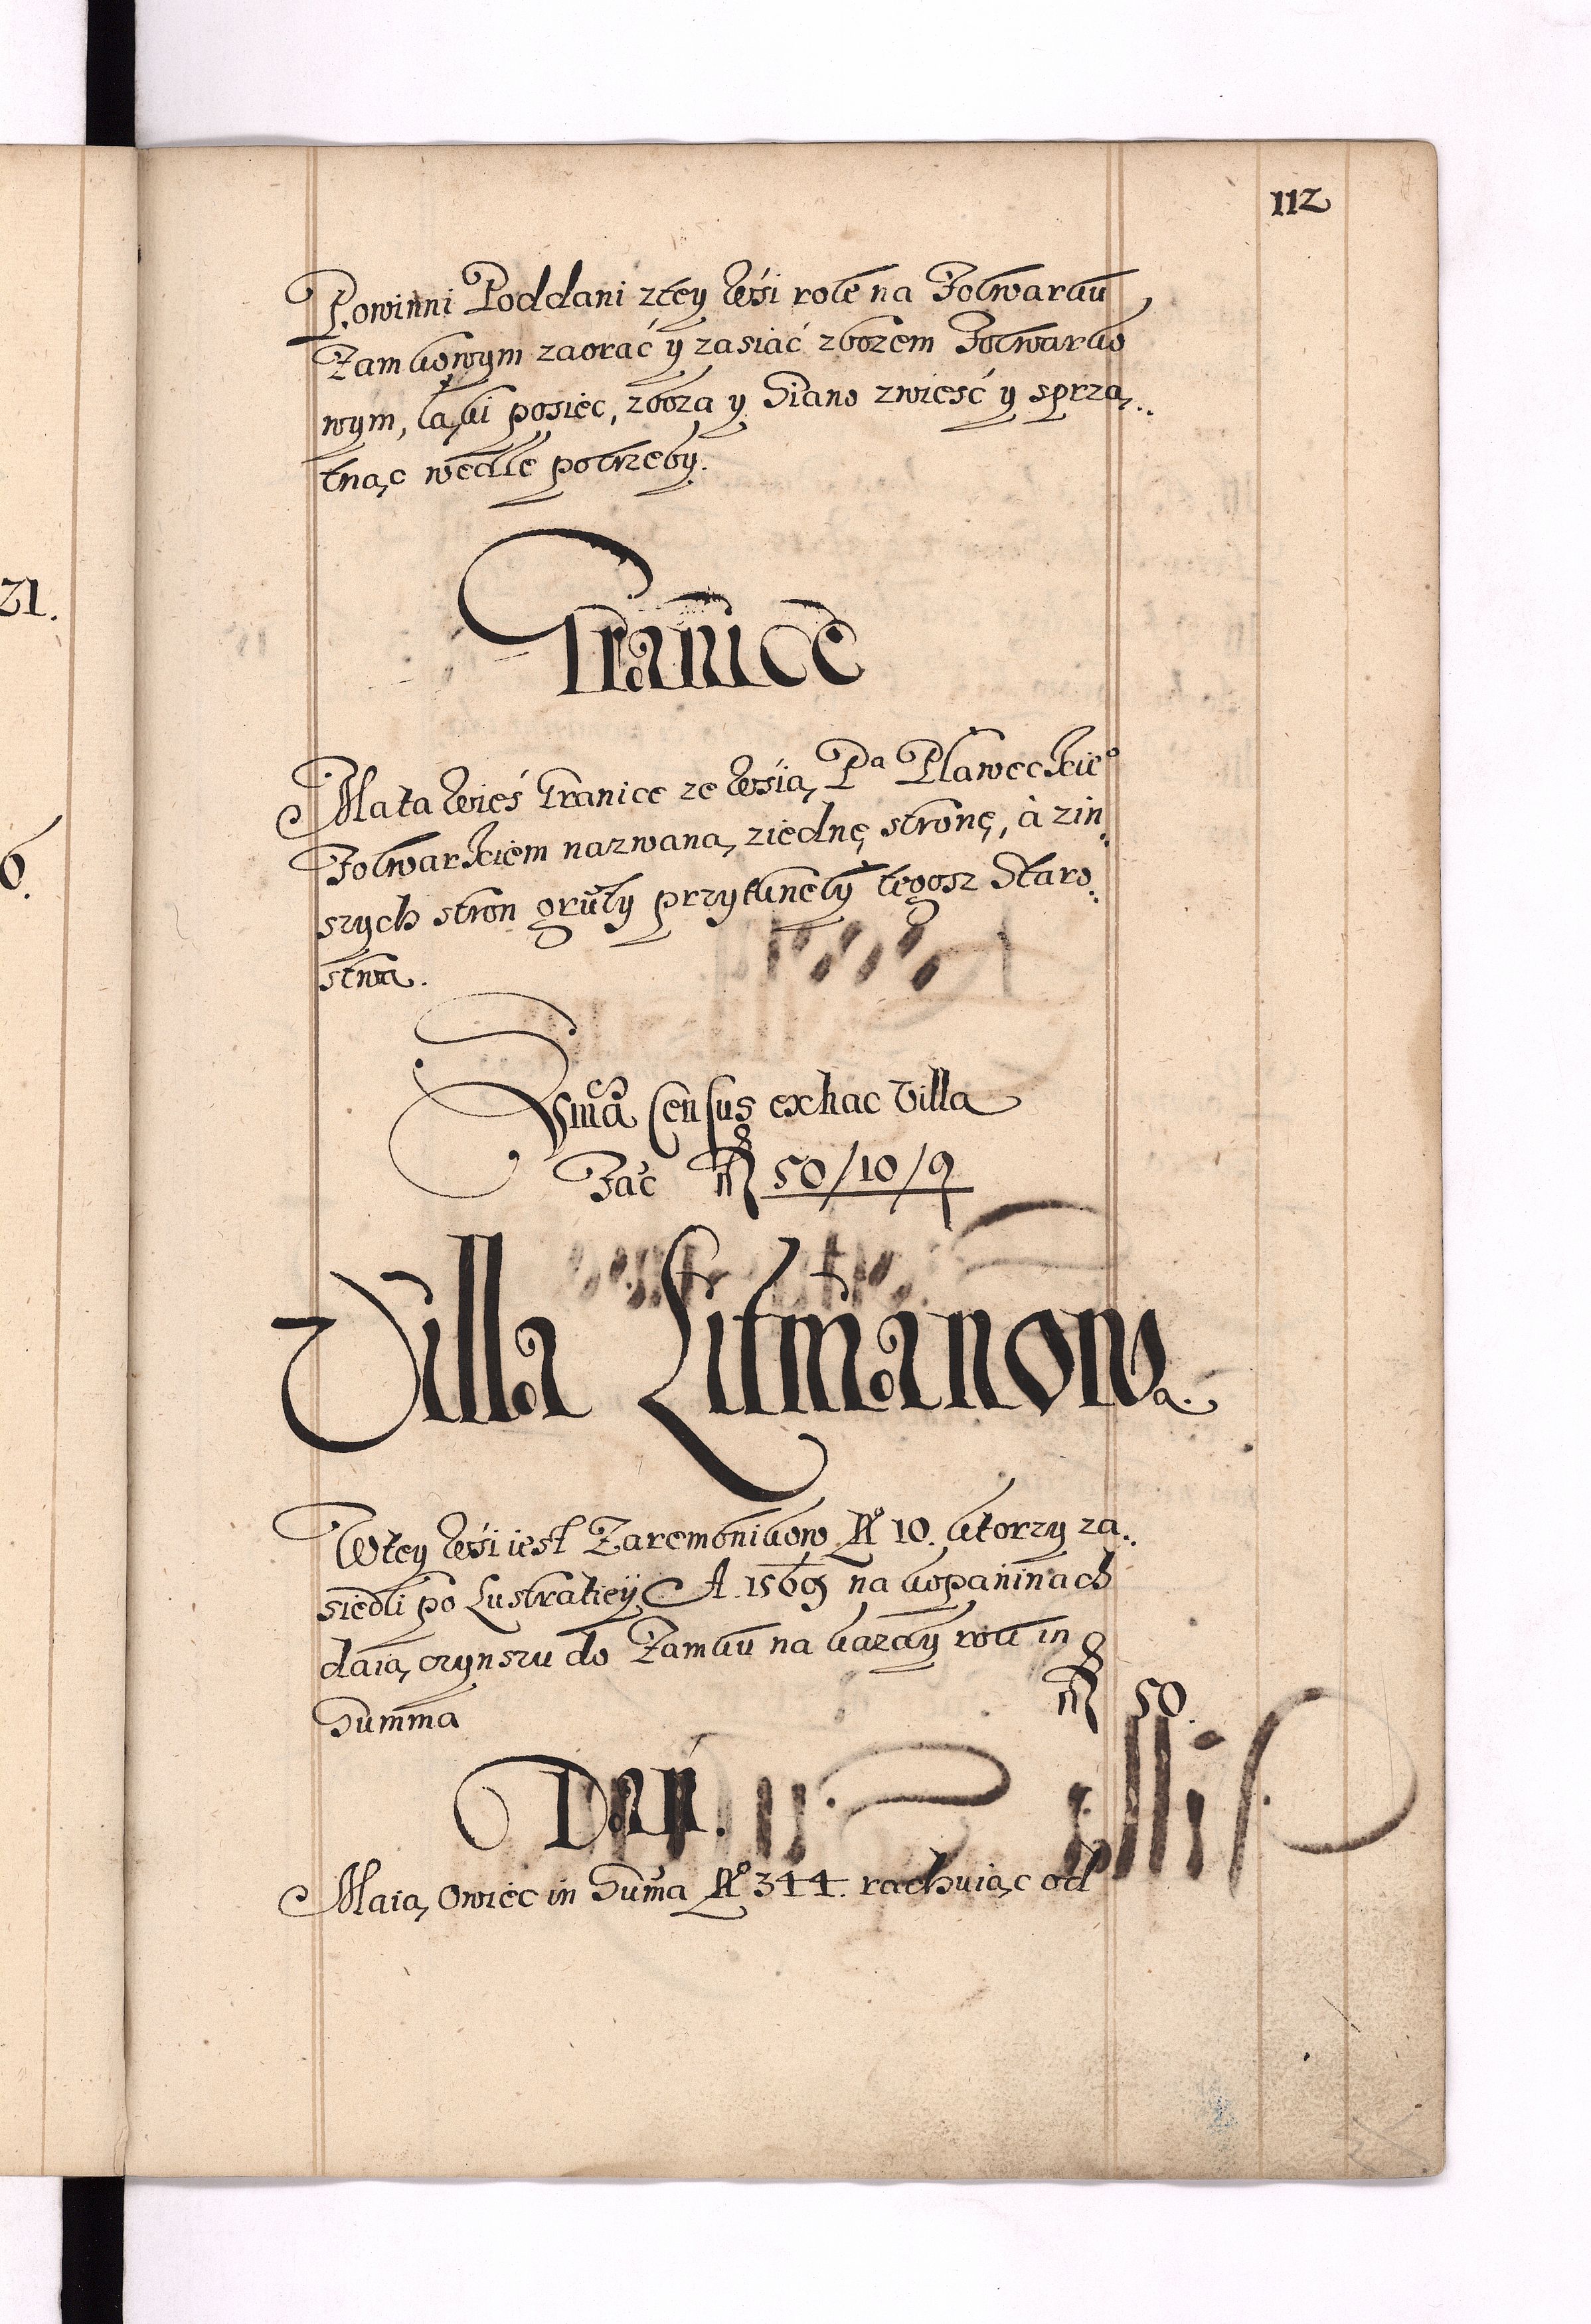 112
Powinni Poddani z tey Wsi role na Folwarku
Zamkowym zaorać y zasiać zbożem Folwarko
wym, łąki posiec, zboża y Siano zwieść y sprzą-
tnąc wedle potrzeby.
Granice
Ma ta Wieś Granice ze Wsią Pa Pławeckieo
Folwarkiem nazwaną z iednę stronę, à z in-
szych stron grūty przytknęły tegosz Staro-
stwa.
Sūma Census ex hac Villa
Fac fl 50/10/9
Villa Litmanowa.
W tey Wsi iest Zarembnikow No 10. ktorzy za-
siedli po Lustratiey A. 1569 na kopaninach
daią czynszu do Zamku na każdy rok in
Summa fl 50.
Dań.
Maią Owiec in Sum̃a No 344. rachuiąc od
21.
6.